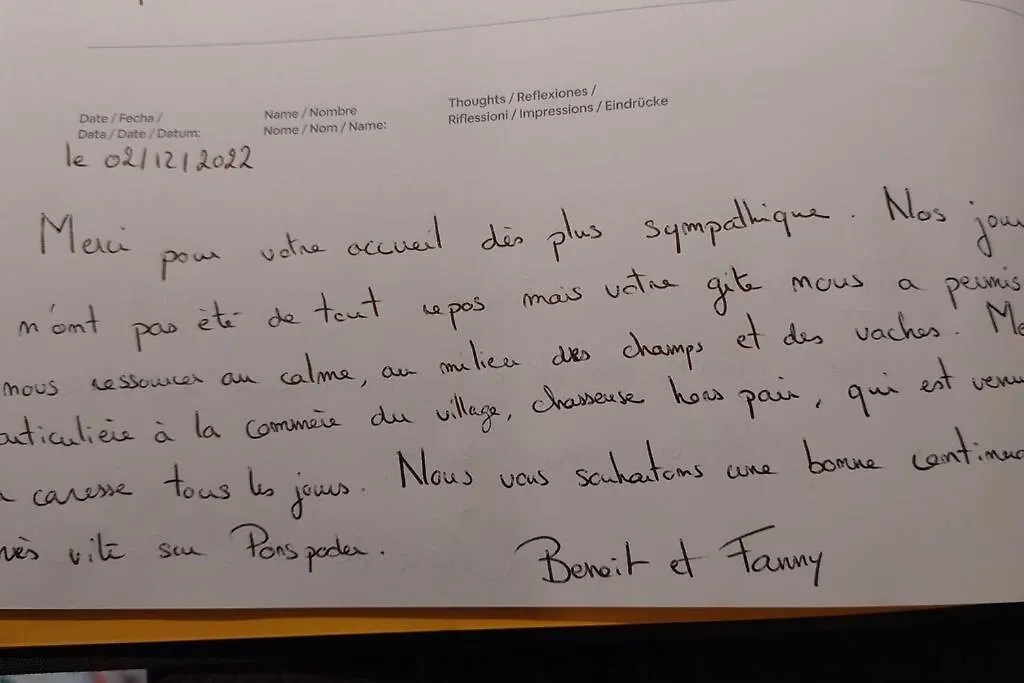 Date / Fecha /
Data / Date / Datum:
Name / Nombre
Nome / Nom / Name:
Thoughts / Reflexiones /
Riflessioni / Impressions / Eindrücke
le 02/12/2022
Merci pour votre accueil dès plus sympathique. Nos jou
n'ont pas été de tout repos mais votre gîte nous a permis
nous ressourcer au calme, au milieu des champs et des vaches. Me
articulière à la commère du village, chasseuse hors pair, qui est venu
a caresse tous les jours. Nous vous souhaitons une bonne continua
rès vite sur Ponspoder.
Benoit et Fanny